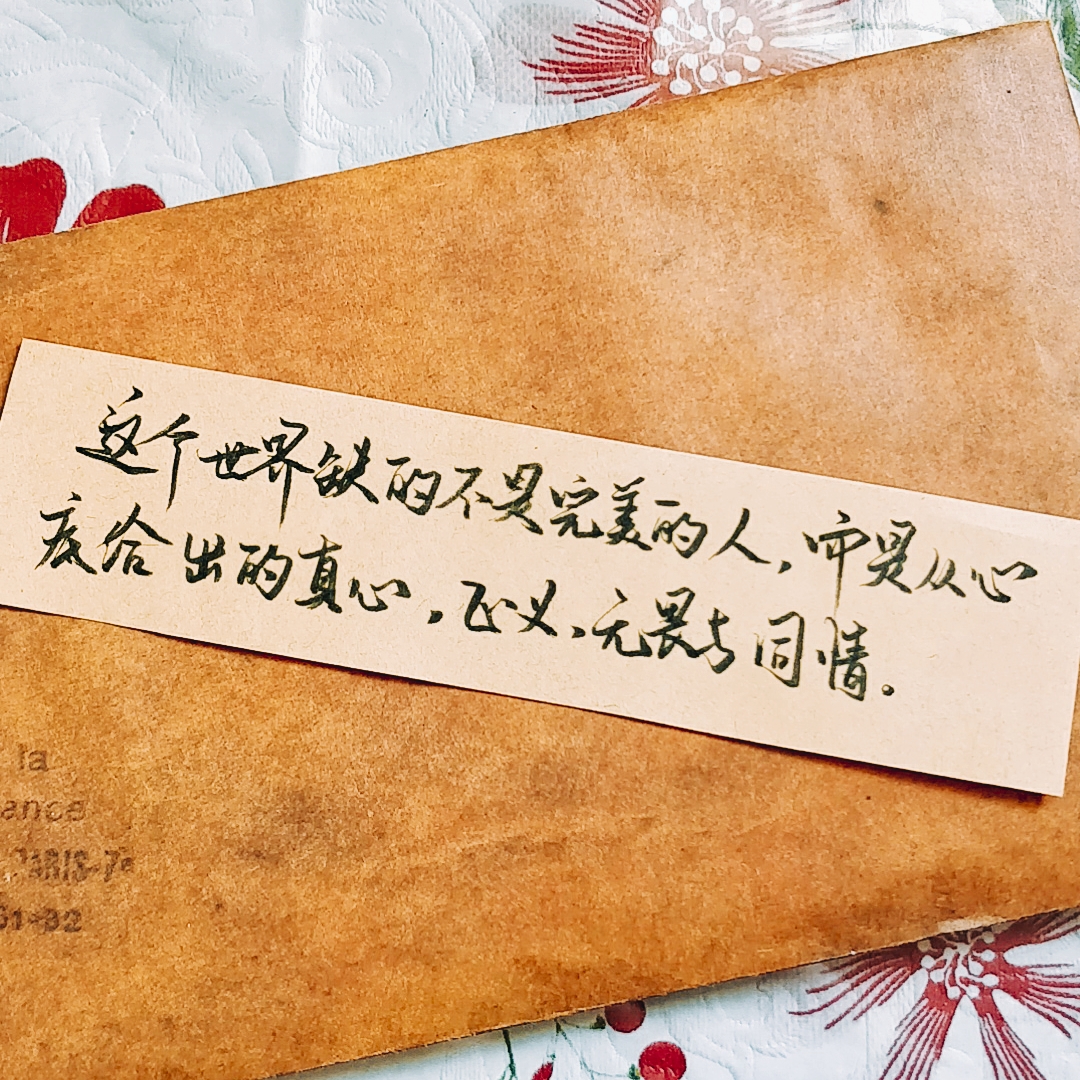 这个世界缺的不是完美的人,而是从心
底给出的真心,正义,无畏与同情。
la
ance
61-92